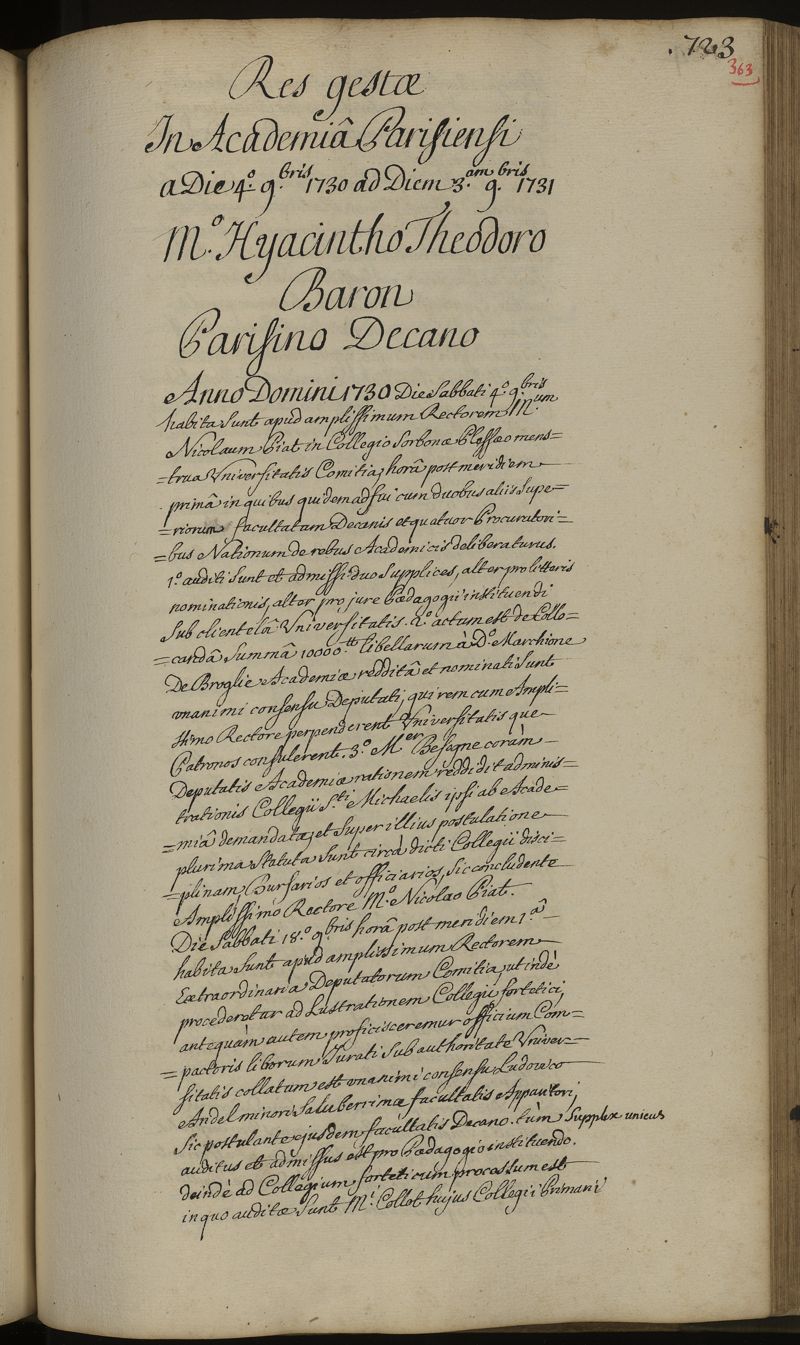 .723
363
Res gestæ
In Academiâ Parisiensi
a Die 4.º 9.bris 1730 ad Diem 3.am 9.bris 1731
M.º Hyacintho Theodoro
Baron
Parisino Decano
Anno Domini 1730 Die Sabbati 4.º 9.bris
habita Sunt apud amplissimum Rectorem M.um
Nicolaum Piat in Collegio Sorbonæ Plessæo mens=
=trua Universitatis Comitia, horâ post meridiem
primâ in quibus quidem adfui cum duobus aliis Supe=
=riorum facultatum Decanis et quatuor Procuratori=
=bus Nationum de rebus Academicis deliberaturus.
1.º auditi Sunt et admissi duo Supplices, alter pro litteris
nominationis, alter pro jure Pædagogii instituendi
Sub clientelâ Universitatis. 2.º actum est de Collo=
=candâ Summâ 10000.tt libellarum à D.º Marchione
De Broglie Academiæ redditâ et nominati Sunt
unanimi consensu Deputati, qui rem cum Ampli=
ssimo Rectore perpenderent Universitatis que
Patronos consulerent. 3.º M.er Besogne coràm
Deputatis Academiæ rationem reddidit adminis=
trationis Collegii S.ti Michaelis ipsi ab Acade=
=miâ demandatæ, et Super illius postulatione
plurima Statuta Sunt circà dicti Collegii disci=
=plinam, Bursarios et officiarios, Sic concludente
Amplissimo Rectore M.º Nicolao Piat.
Die Sabbati 18.º 9.bris horâ post meridiem 1.â
habita Sunt apud amplissimum Rectorem
Extraordinaria Deputatorum Comitia, ut indè
procederetur ad Lustrationem Collegii fortetici,
antequàm autem proficisceremur officium Com=
=pactoris librorum Jurati Sub authoritate Univer=
sitatis collatum est unanimi consensu Ludovico
Andel minori Saluberrimæ facultatis Apparitori,
Sic postulante ejusdem facultatis Decano. tùm Supplex unicus
auditus et admissus est pro Pædagogio instituendo.
deindè ad Collegium forteticum processum est
in quo auditæ Sunt M.i Collot hujus Collegii Primarii